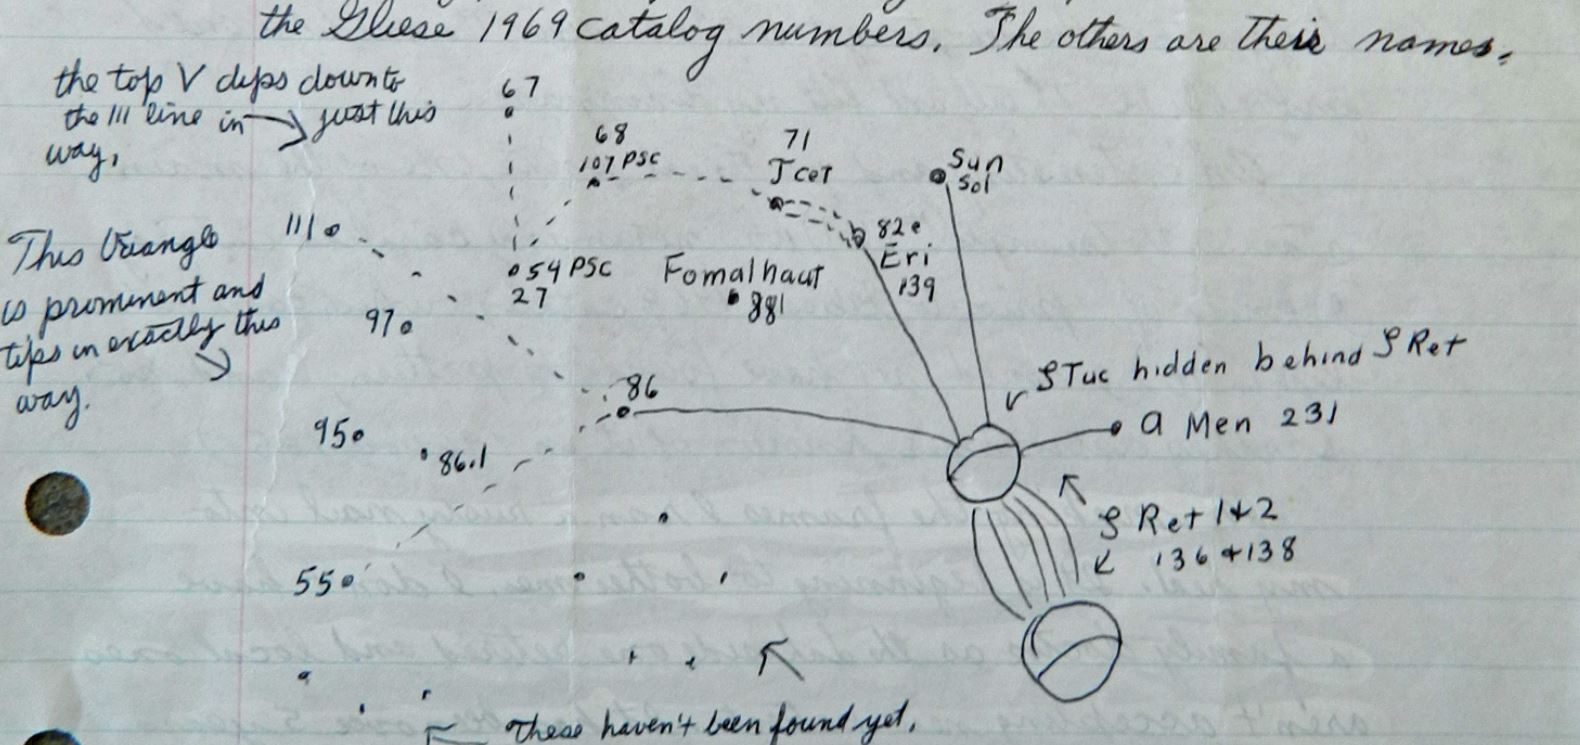 the Gliese 1969 catalog numbers. The others are their names.
the top V dips down to
the 111 line in just this
way.
67
68
107 PSC
71
Tcet
Sun
Sol
111
82e
Eri
139
This triangle
is prominent and
tips in exactly this
way.
54 PSC
27
Fomalhaut
881
97
86
ζ Tuc hidden behind ζ Ret
α Men 231
95
86.1
ζ Ret 1&2
136 & 138
55
These haven't been found yet.